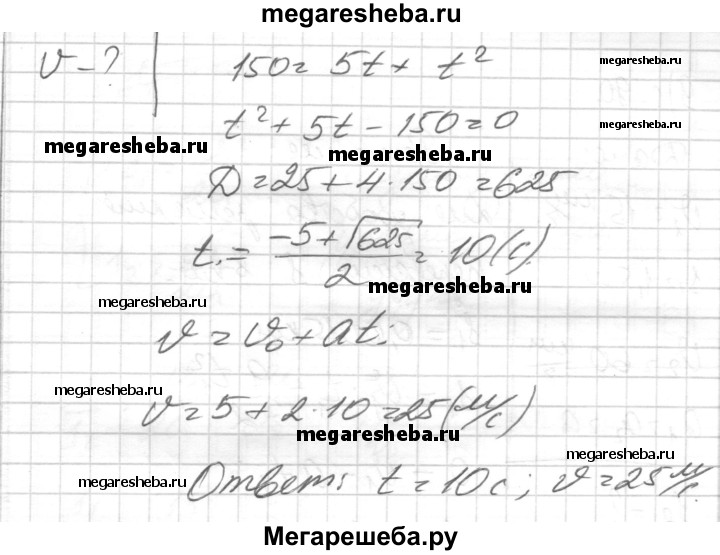 megaresheba.ru
V - ? 150 = 5t + t²
megaresheba.ru
t² + 5t - 150 = 0
megaresheba.ru
megaresheba.ru
megaresheba.ru
Д = 25 + 4·150 = 625
t₁ = (-5 + √625)/2 = 10 (с)
megaresheba.ru
megaresheba.ru
v = v₀ + at;
megaresheba.ru
v = 5 + 2·10 = 25 (м/с)
megaresheba.ru
megaresheba.ru
megaresheba.ru
Ответ: t = 10 с; v = 25 м/с.
Мегарешеба.ру